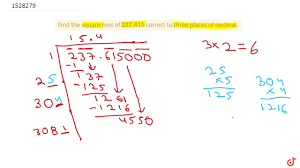 1528279
Find the square root of 237.615 correct to three places of decimal.
15.4
1 237.615000
-1
25 137
-125
304 1261
-1216
3081 4550
3×2=6
25
×5
125
304
×4
1216